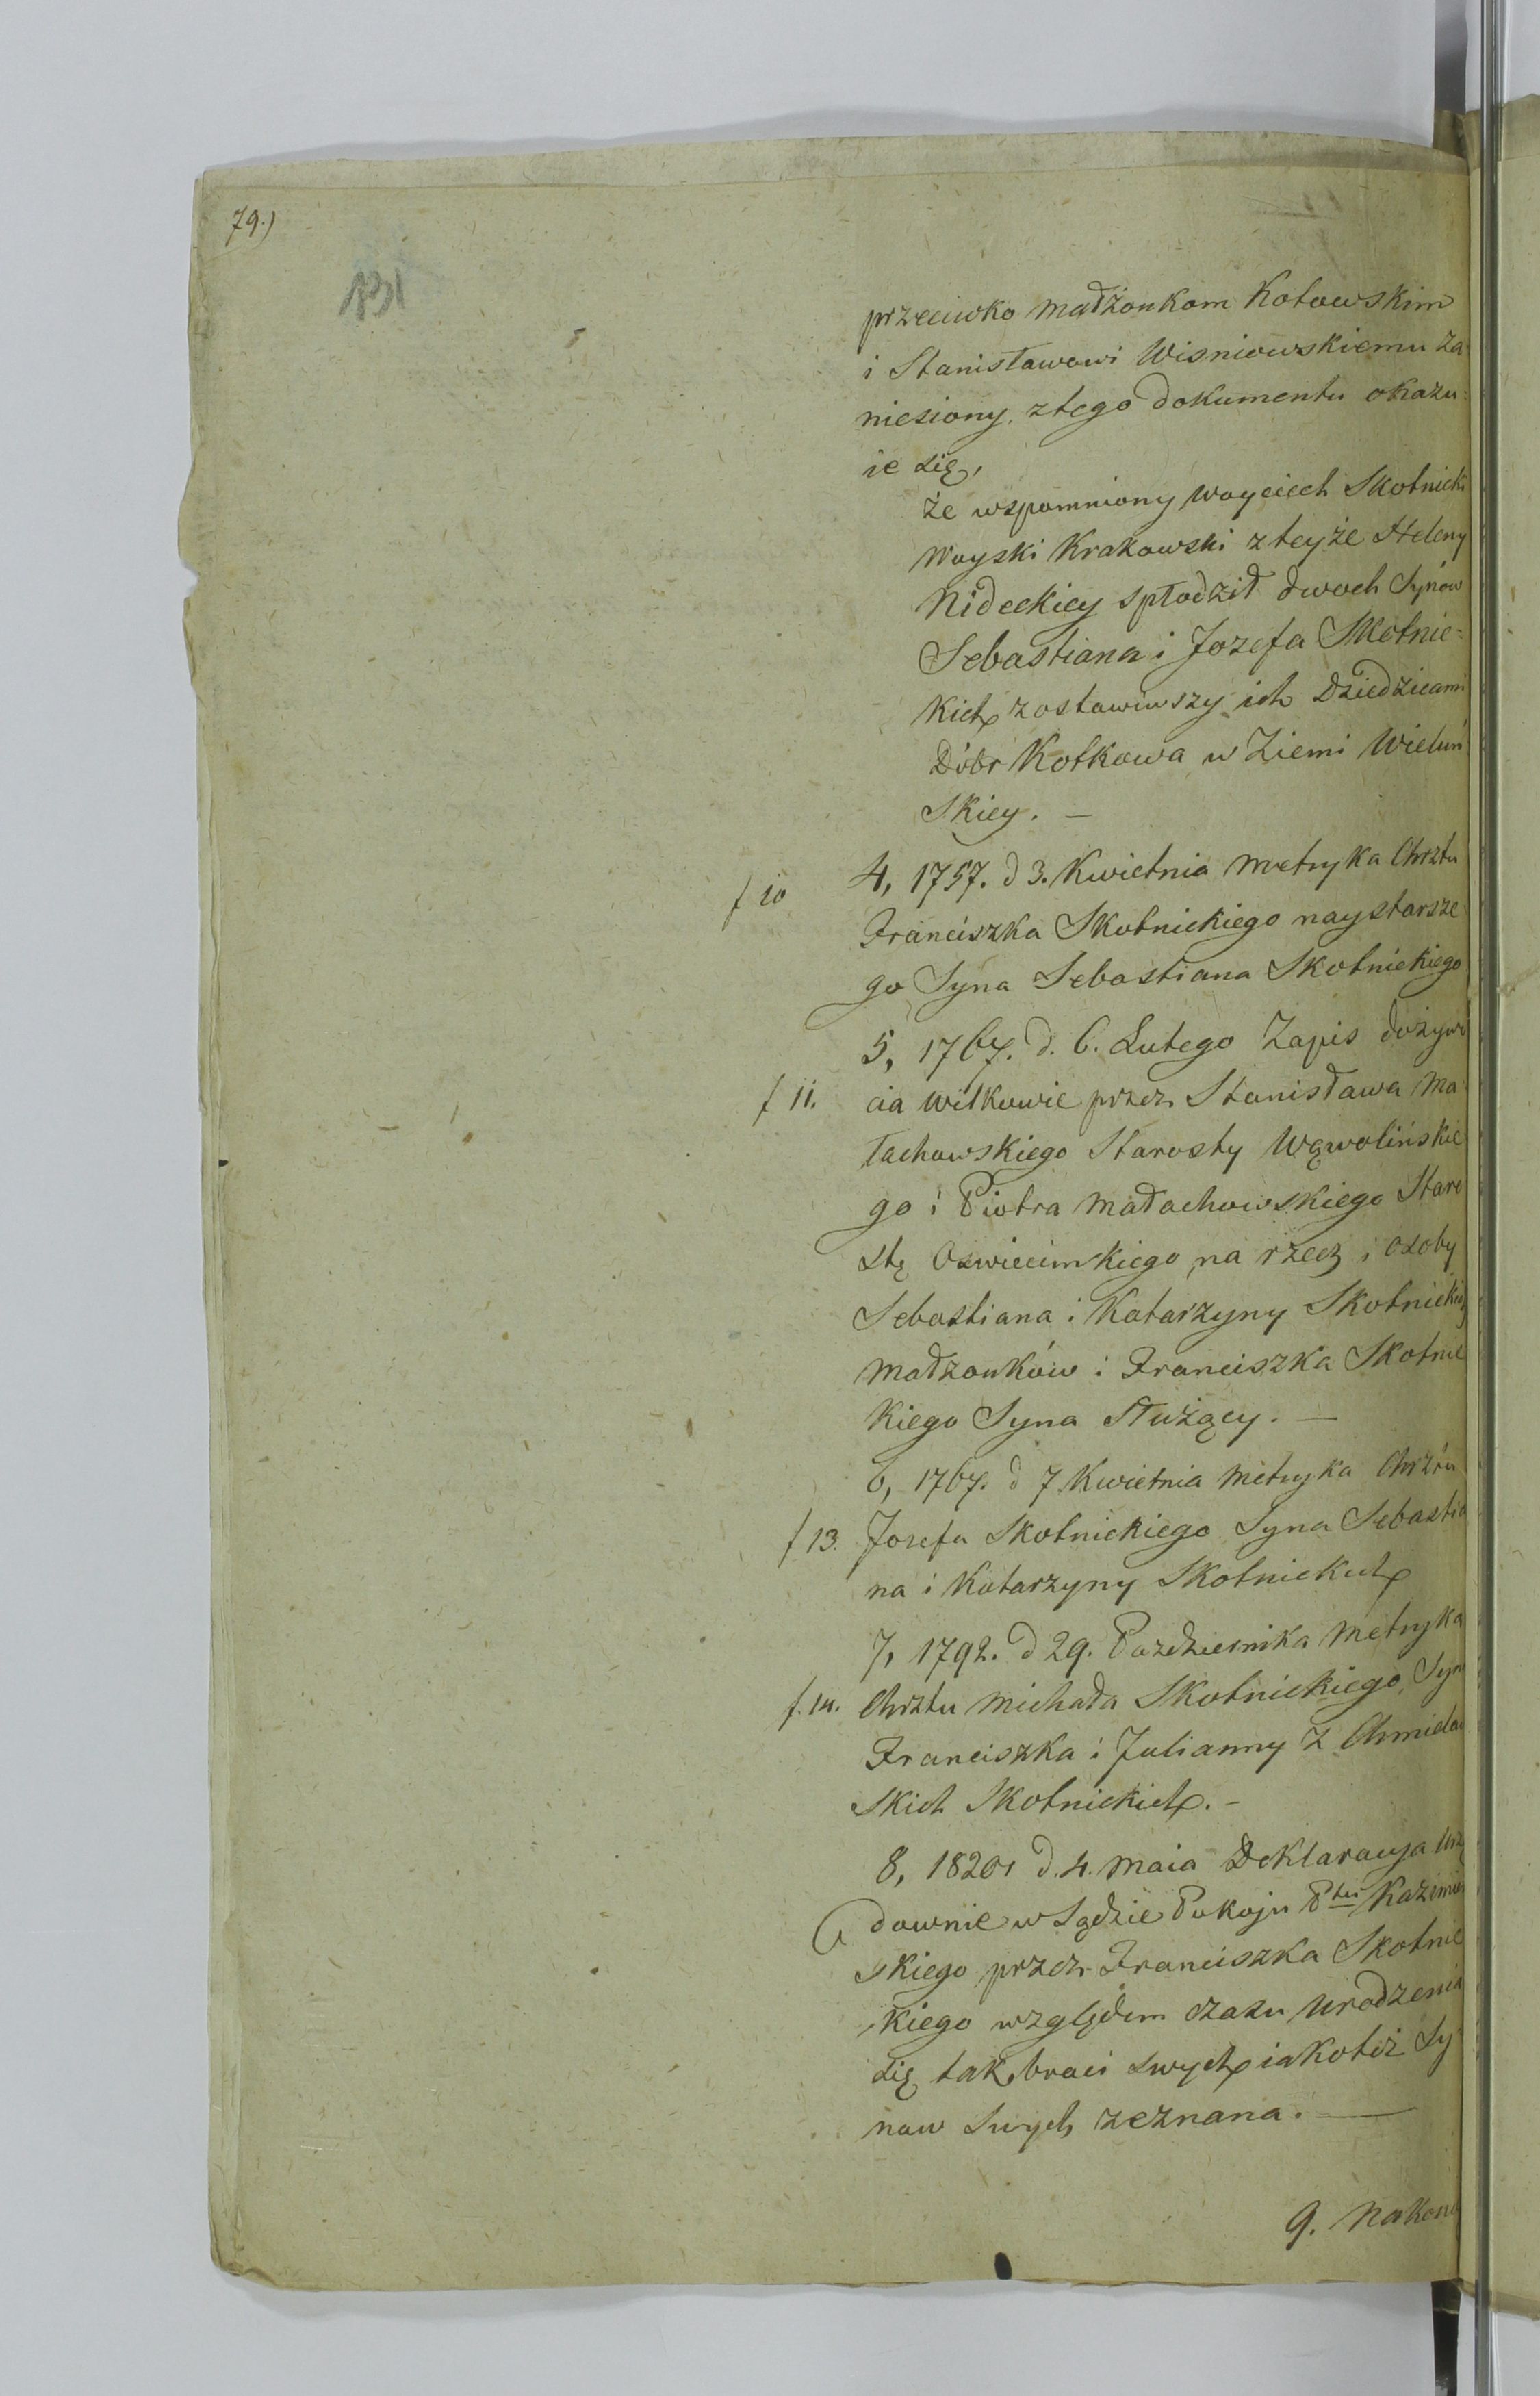 79.)
131
przeciwko małżonkom Kotowskim
i Stanisławowi Wisniowskiemu za
niesiony, ztego dokumentu okazu:
ie się,
że wspomniony Woyciech Skotnicki
Woyski Krakowski zteyże Heleny
Nideckiey spłodził dwoch Synów
Sebastiana i Jozefa Skotnic=
kich zostawiwszy ich Dziedzicami
Dóbr Kotkowa w Ziemi Wieluń
skiey. —
f 10 4, 1757. d 3. Kwietnia metryka Chrztu
Franciszka Skotnickiego naystarsze
go Syna Sebastiana Skotnickiego
5, 1767. d. 6. Lutego Zapis dożywo
f 11. cia wilkowie przez Stanisława Ma
łachowskiego Starosty Wąwolińskie
go i Piotra Małachowskiego Staro
stę Oswiecimkiego na rzecz i osoby
Sebastiana i Katarzyny Skotnickich
małżonków i Franciszka Skotnic
kiego Syna służący. —
6, 1767. d 7 Kwietnia metryka Chrztu
f 13. Jozefa Skotnickiego Syna Sebastia
na i Katarzyny Skotnickich
7, 1792. d 29. Pazdziernika metryka
f. 14. Chrztu michała Skotnickiego, Syna
Franciszka i Julianny z Chmielow
skich Skotnickich. -
8, 1820 d. 4. maia Deklaracya Urzę
downie w Sądzie Pokoju Ptu Kazimier
skiego przez Franciszka Skotnic
kiego względem czasu urodzenia
się tak braci swych iakotéż Sy
now Swych zeznana. —
9. Nakoni